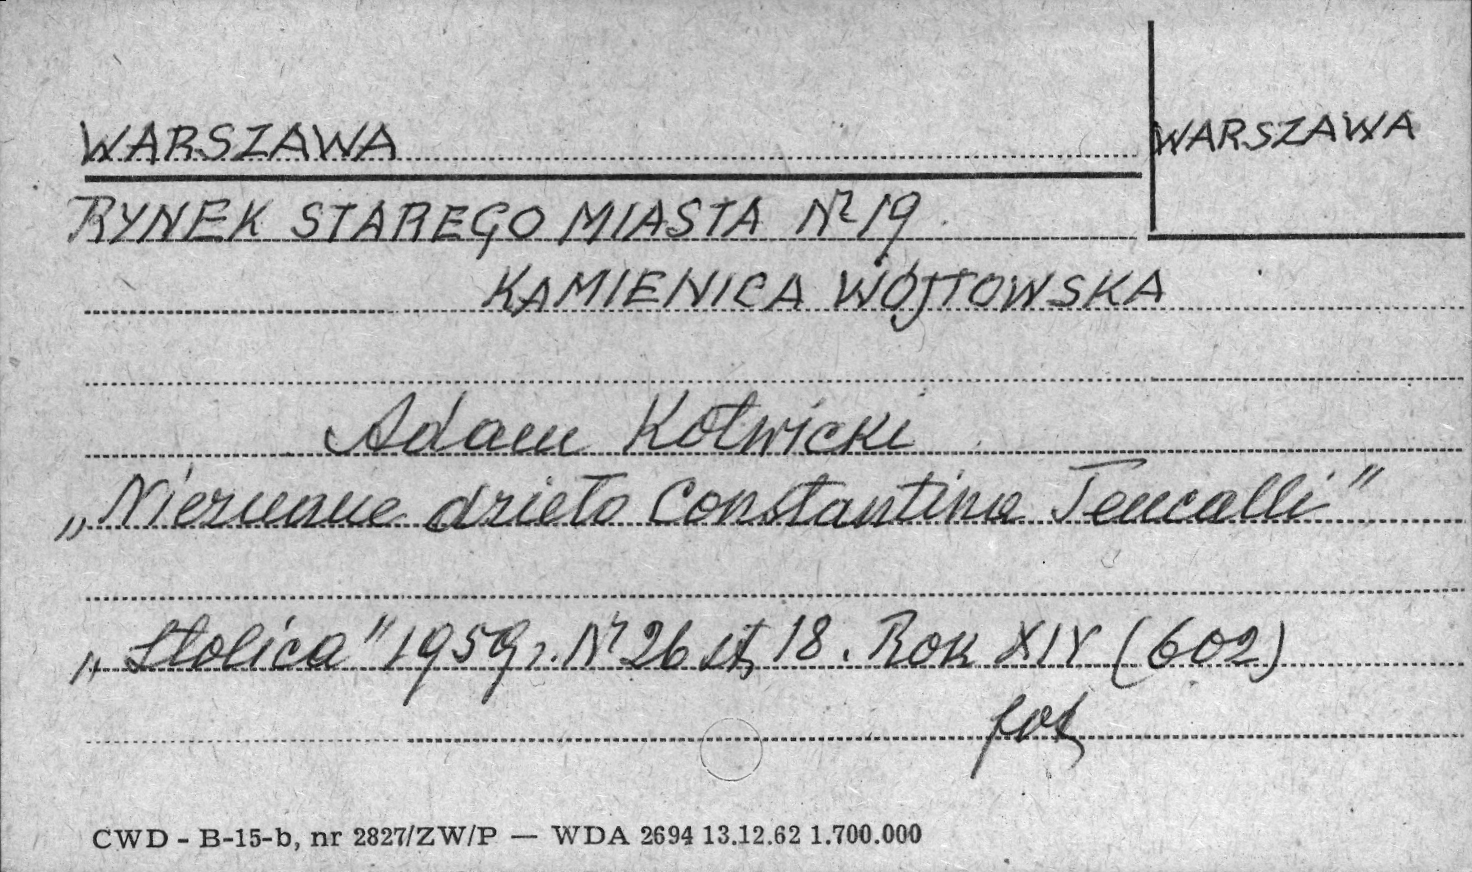 WARSZAWA
WARSZAWA
RYNEK STAREGO MIASTA Nr 19
KAMIENICA WÓJTOWSKA
Adam Kotwicki
„Nieznane dzieło Constantina Tencalli"
„Stolica" 1959 r. Nr 26 str 18. Rok XIV (602)
fot
CWD - B-15-b, nr 2827/ZW/P — WDA 2694 13.12.62 1.700.000